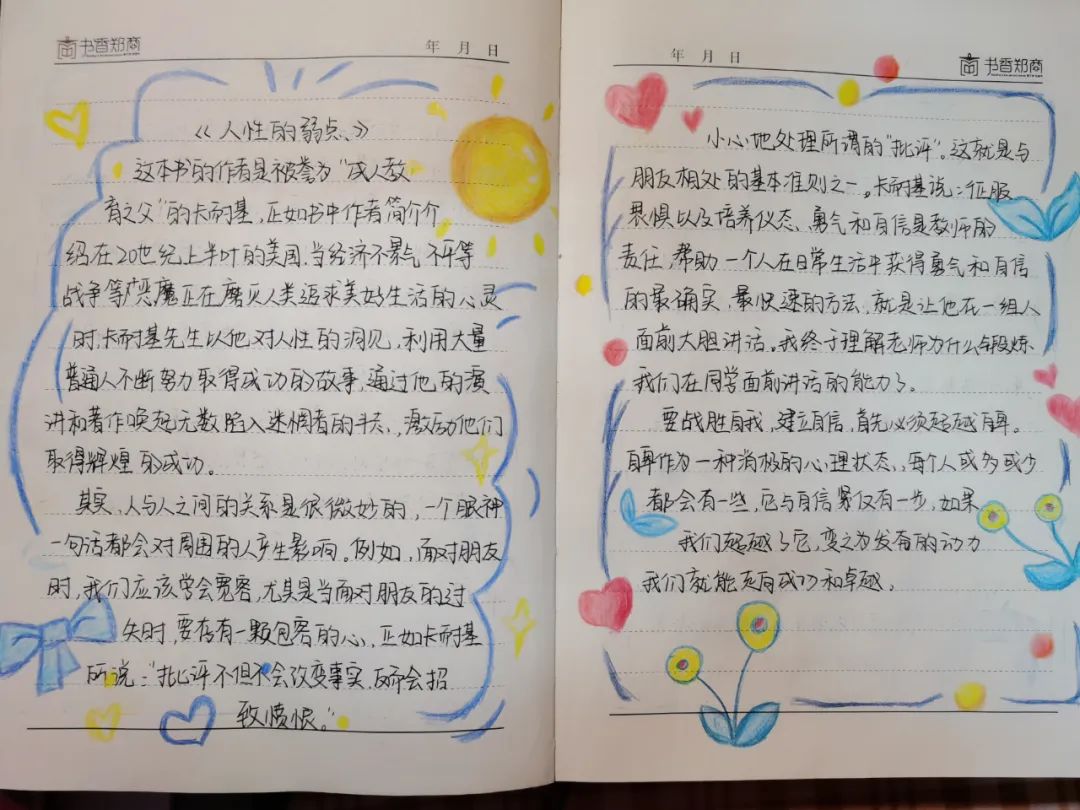 书香郑商
年 月 日
《人性的弱点、》
这本书的作者是被誉为"成人教
育之父"的卡耐基,正如书中作者简介介
绍在20世纪上半叶的美国,当经济不景气 不平等
战争等恶魔正在磨灭人类追求美好生活的心灵
时,卡耐基先生以他对人性的洞见,利用大量
普通人不断努力取得成功的故事,通过他的演
讲和著作唤起无数陷入迷惘者的斗志,激励他们
取得辉煌的成功。
其实,人与人之间的关系是很微妙的,一个眼神
一句话都会对周围的人产生影响。例如,面对朋友
时,我们应该学会宽容,尤其是当面对朋友的过
失时,要存有一颗包容的心,正如卡耐基
所说:"批评不但不会改变事实,反而会招
致愤恨。"
年 月 日
书香郑商
小心地处理所谓的"批评"。这就是与
朋友相处的基本准则之一。卡耐基说:征服
畏惧以及培养仪态、勇气和自信是教师的
责任,帮助一个人在日常生活中获得勇气和自信
的最确实,最快速的方法,就是让他在一组人
面前大胆讲话。我终于理解老师为什么锻炼
我们在同学面前讲话的能力了。
要战胜自我,建立自信,首先必须超越自卑。
自卑作为一种消极的心理状态,每个人或多或少
都会有一些,它与自信累仅有一步,如果
我们超越了它,变之为发奋的动力
我们就能走向成功和卓越。